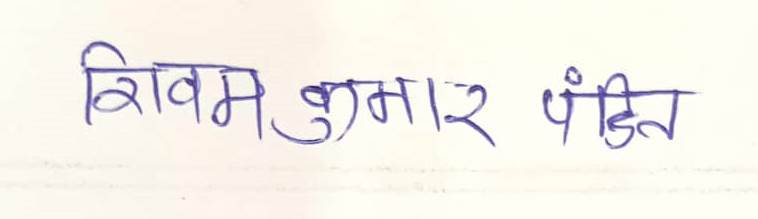 शिवम कुमार पंडित